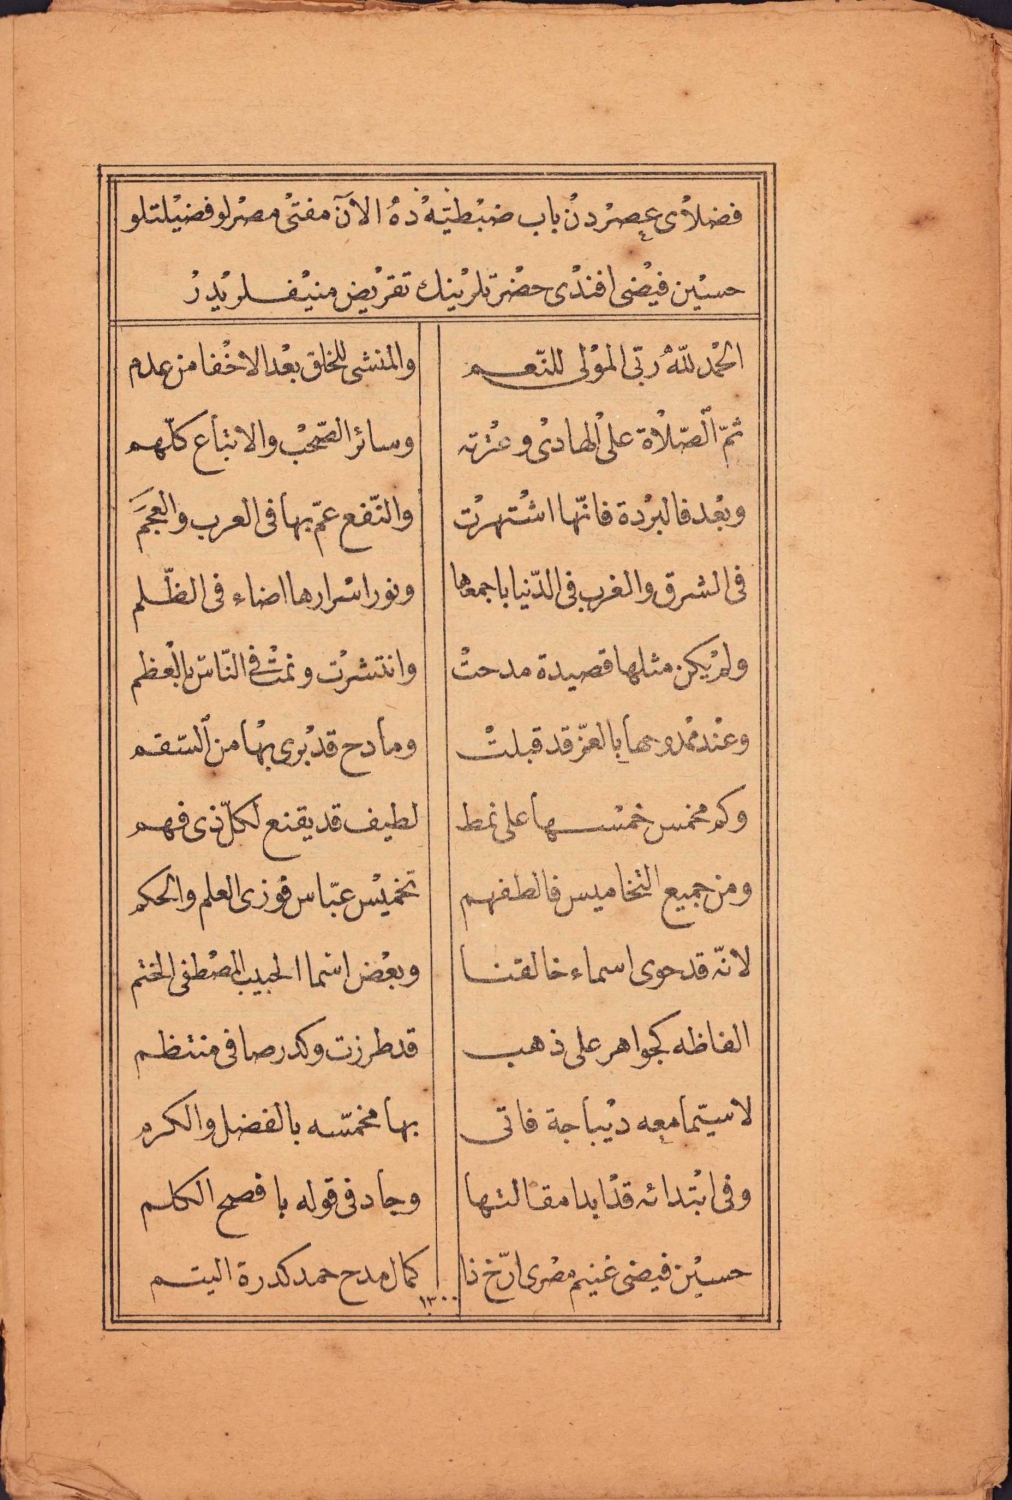 فضلاء عصردن باب ضبطيّه ده الآن مفتئ مصرلو فضيلتلو
حسين فيضى افندى حضرتلرينك تقريض منيفلريدر
الحمد للّه ربّى المولى للنّعم والمنشى للخلق بعد الاخفا من عدم
ثمّ الصّلاة على الهادى وعترته وسائر الصّحب والاتباع كلّهم
وبعد فالبردة فانّها اشتهرت والنّفع عمّ بها فى العرب والعجم
فى الشرق والغرب فى الدّنيا باجمعها ونور اسرارها اضاء فى الظّلم
ولم يكن مثلها قصيدة مدحت وانتشرت ونمت فى النّاس بالعظم
وعند ممدوحها بالعزّ قد قبلت ومادح قد برى بها من السّقم
وكم مخمس خمسها على نمط لطيف قد يقنع لكلّ ذى فهم
ومن جميع التخاميس فالطفهم تخميس عبّاس فوزى العلم والحكم
لانّه قد حوى اسماء خالقنا وبعض اسما الحبيب المصطفى الختم
الفاظه كجواهر على ذهب قد طرزت وكدر صافى منتظم
لاسيّما معه ديباجة فاتى بها مخمّسه بالفضل والكرم
وفى ابتدائه قد ابدا مقالتها وجاد فى قوله بافصح الكلم
حسين فيضى غنيم مصرى ارّخ ذا كمال مدح حمد كدرة اليتم
١٣٠٠